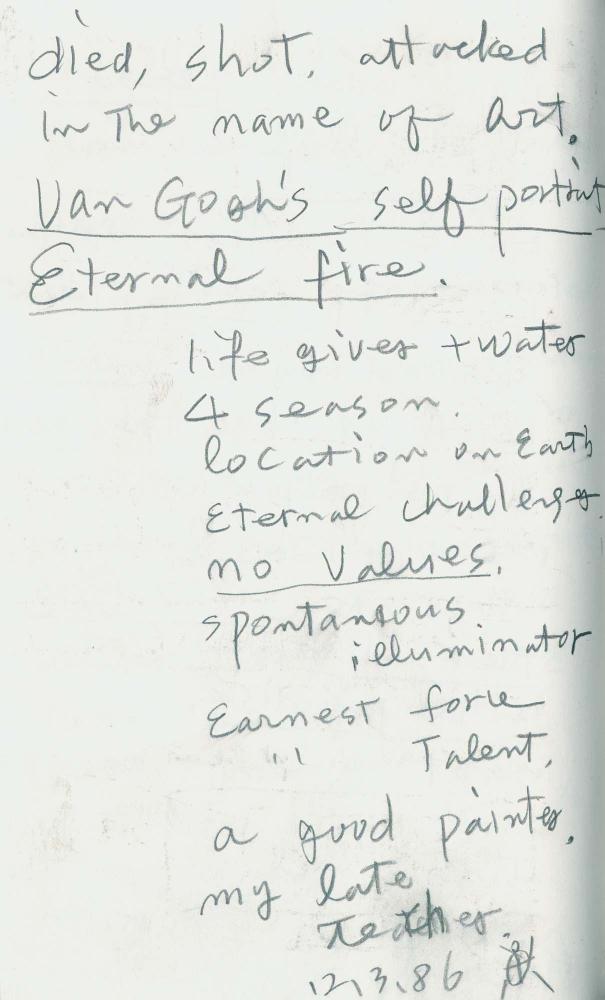 died, shot, attacked
in The name of art.
Van Gogh's self portrait
Eternal fire.
life gives + water
4 season.
location on Earth
Eternal challenges.
no Values.
spontanaous
illuminator
Earnest force
" Talent.
a good painter.
my late
Teacher.
12,3,86